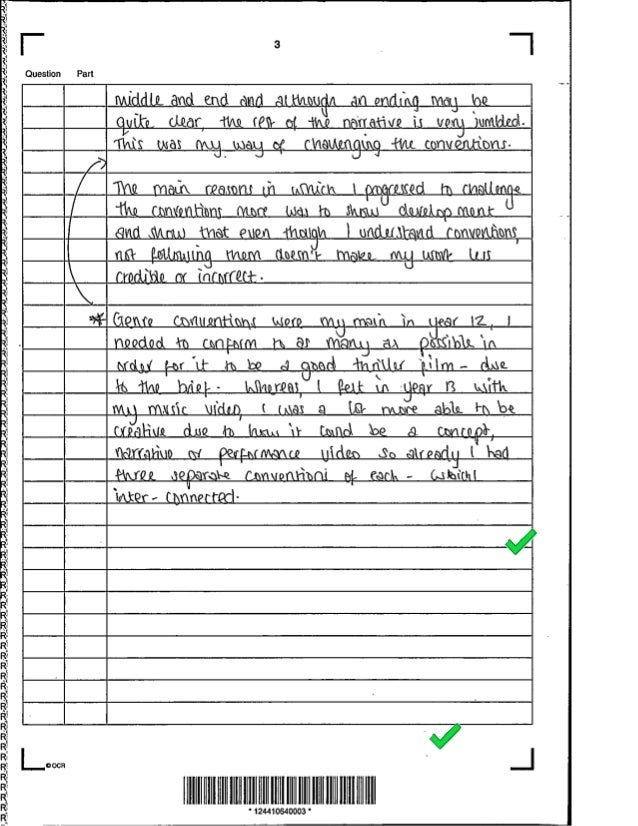 3
Question Part
middle and end and although an ending may be
quite clear, the rest of the narrative is very jumbled.
This was my way of challenging the conventions.
The main reasons in which I progressed to challenge
the conventions more was to show development
and show that even though I understand conventions,
not following them doesn't make my work less
credible or incorrect.
* Genre conventions were my main in year 12, I
needed to conform to as many as possible in
order for it to be a good thriller film - due
to the brief. Whereas, I felt in year 13 with
my music video, I was a lot more able to be
creative due to how it could be a concept,
narrative or performance video so already I had
three separate conventions of each - (which)
inter-connected.
© OCR
* 124410640003 *